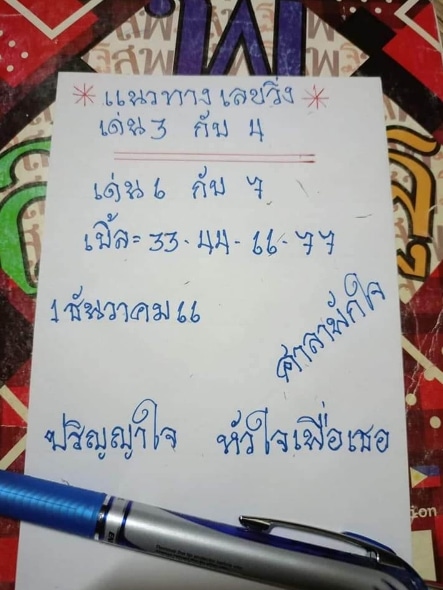 * แนวทางเลขวิ่ง *
เด่น 3 กับ 4
เด่น 6 กับ 7
เบิ้ล = 33 - 44 - 66 - 77
1 ธันวาคม 66
ศาลาพักใจ
ปริญญาใจ หัวใจเพื่อเธอ